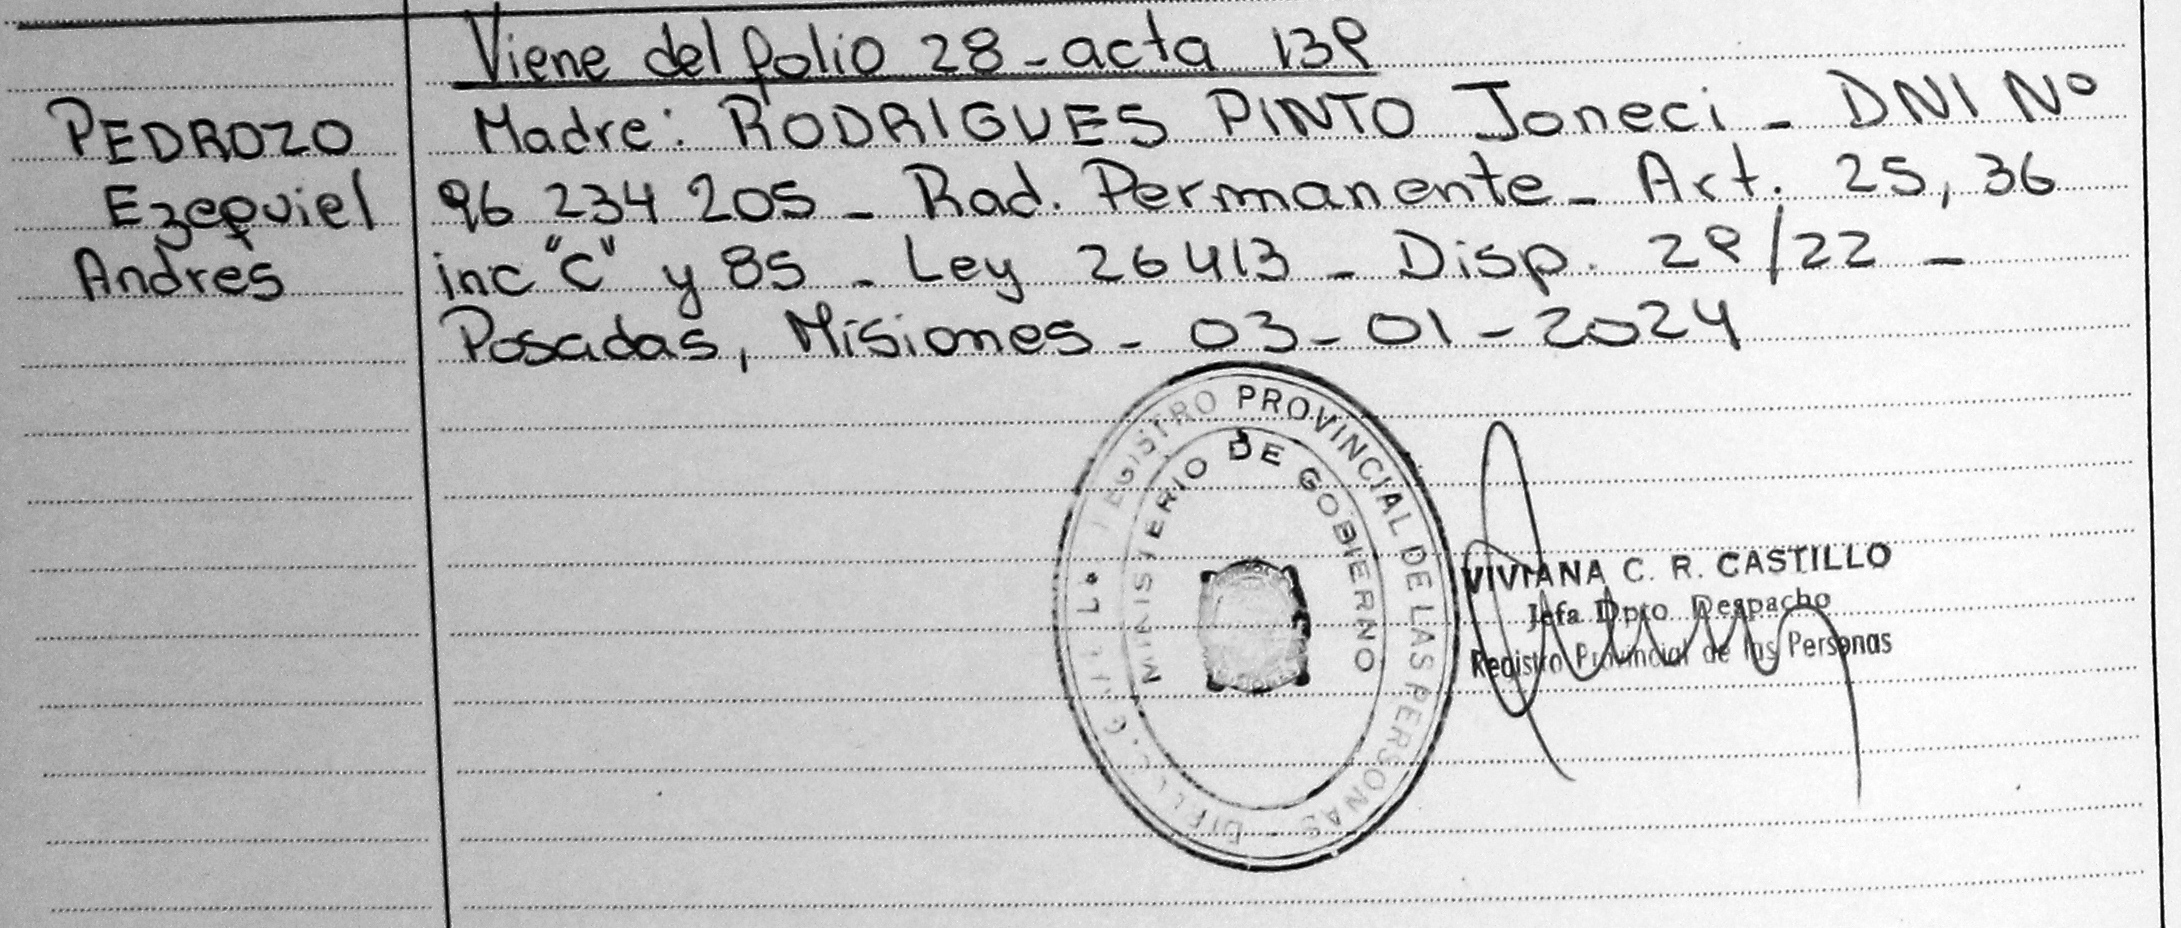 Viene del folio 28 - acta 139
PEDROZO
Ezequiel
Andres
Madre: RODRIGUES PINTO Joneci - DNI Nº
96 234 205 - Rad. Permanente - Art. 25, 36
inc "C" y 85 - Ley 26413 - Disp. 29/22 -
Posadas, Misiones - 03-01-2024
REGISTRO PROVINCIAL DE LAS PERSONAS
MINISTERIO DE GOBIERNO
VIVIANA C. R. CASTILLO
Jefa Dpto. Despacho
Registro Provincial de las Personas